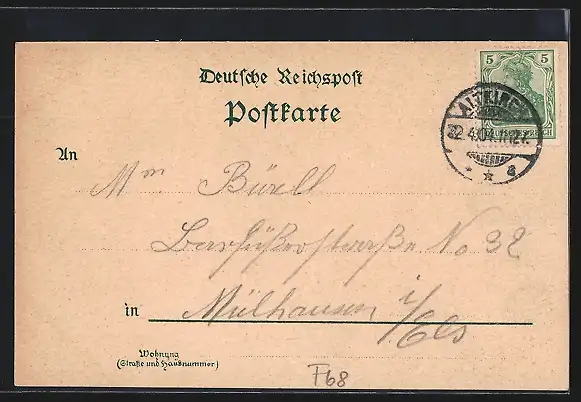 Deutsche Reichspost
Postkarte
5 5
DEUTSCHES REICH
ALTKIRCH
22.4.04.11-12V.
* * a
An
Mm Bürll
Barfüßerstraße No 32
in Mülhausen i/Els
Wohnung
(Straße und Hausnummer)
F68